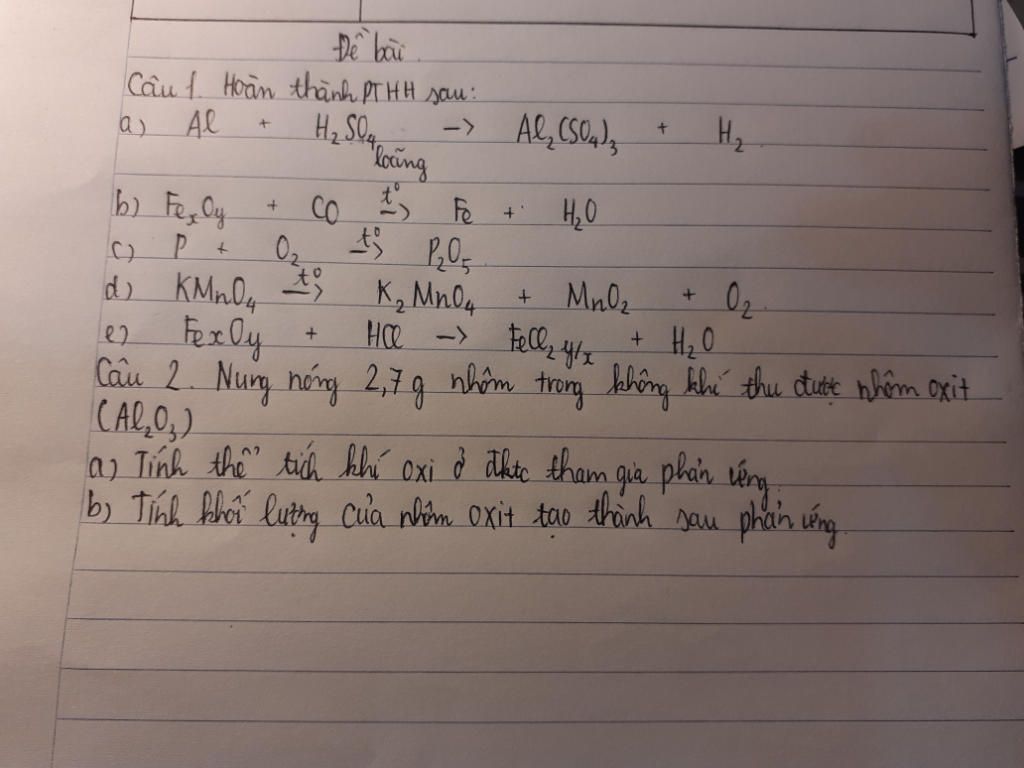 Đề bài.
Câu 1. Hoàn thành PTHH sau:
a) Al + H₂SO₄ loãng -> Al₂(SO₄)₃ + H₂
b) FeₓOy + CO t° -> Fe + H₂O
c) P + O₂ t° -> P₂O₅
d) KMnO₄ t° -> K₂MnO₄ + MnO₂ + O₂.
e) FexOy + HCl -> FeCl₂y/x + H₂O
Câu 2. Nung nóng 2,7 g nhôm trong không khí thu được nhôm oxit
(Al₂O₃)
a) Tính thể tích khí oxi ở đktc tham gia phản ứng.
b) Tính khối lượng của nhôm oxit tạo thành sau phản ứng.